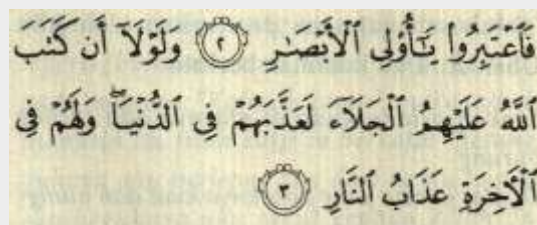 فَٱعۡتَبِرُواْ يَٰٓأُوْلِي ٱلۡأَبۡصَٰرِ ٢ وَلَوۡلَآ أَن كَتَبَ
ٱللَّهُ عَلَيۡهِمُ ٱلۡجَلَآءَ لَعَذَّبَهُمۡ فِي ٱلدُّنۡيَاۖ وَلَهُمۡ فِي
ٱلۡأٓخِرَةِ عَذَابُ ٱلنَّارِ ٣